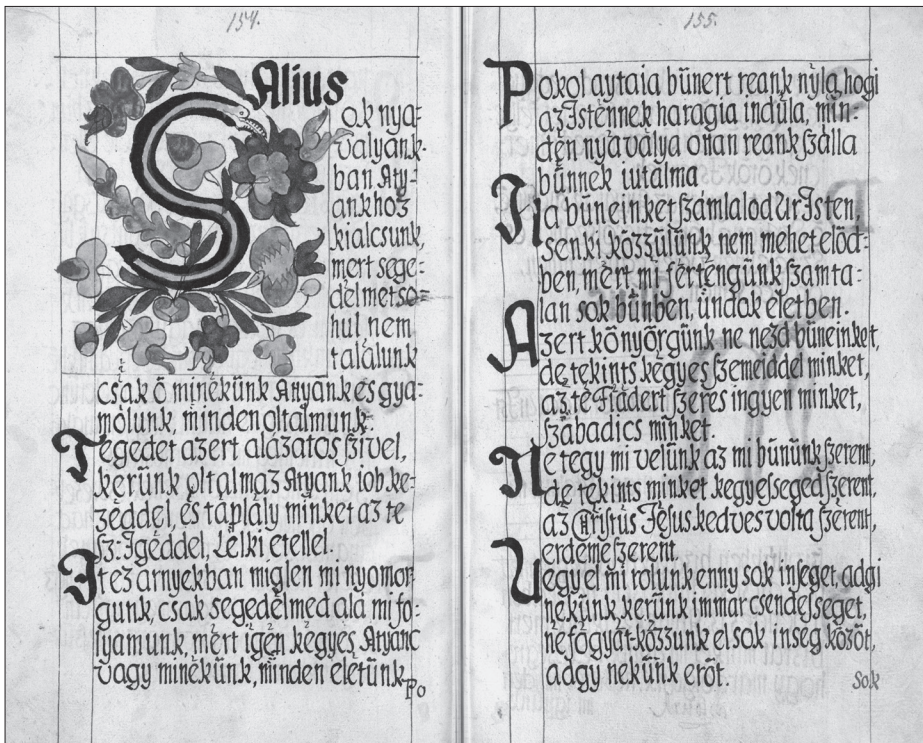 154.
SAlius
ok nya:
valyank
ban Aty-
ankhoz
kialcsunk,
mert sege:
delmet so:
hul nem
talalunk
csak ő minékünk Atyank es gya:
mòlunk, minden oltalmunk.
Tegedet azert alázatos szivel,
kerünk oltalmaz Atyank iob ke:
zéddel, és táplály minket az te
sz: Igéddel, Lelki etellel.
Itez arnyekban miglen mi nyomor
gunk, csak segedelmed alá mi fo:
lyamunk, mért igen kégyes Atyanc
vagy minékünk, minden eletünk
Po
155.
Pokol aytaia bünert reank nyla, hogi
az Istennek haragia indúla, min:
den nyavalya onan reank szálla
bünnek iutalma
Ha büneinket számlalod Ur Isten,
senki közzülünk nem mehet elöd:
ben, mért mi fertengünk szamta:
lan sok bünben, undok életben.
Azert könyörgünk ne nezd büneinket,
de tekints kégyes szemeiddel minket,
az te Fiadért szeres ingyen minket,
szabadics minket.
Ne tegy mi velünk az mi bününk szerent,
de tekints minket kegyesseged szerent,
az Christus Jesus kedves volta szerent,
erdeme szerent
Vegyel mi rolunk enny sok inseget, adgi
nékünk kerünk immar csendesseget,
ne fogyat-közzunk el sok inseg közöt,
adgy nekünk eröt.
Sok